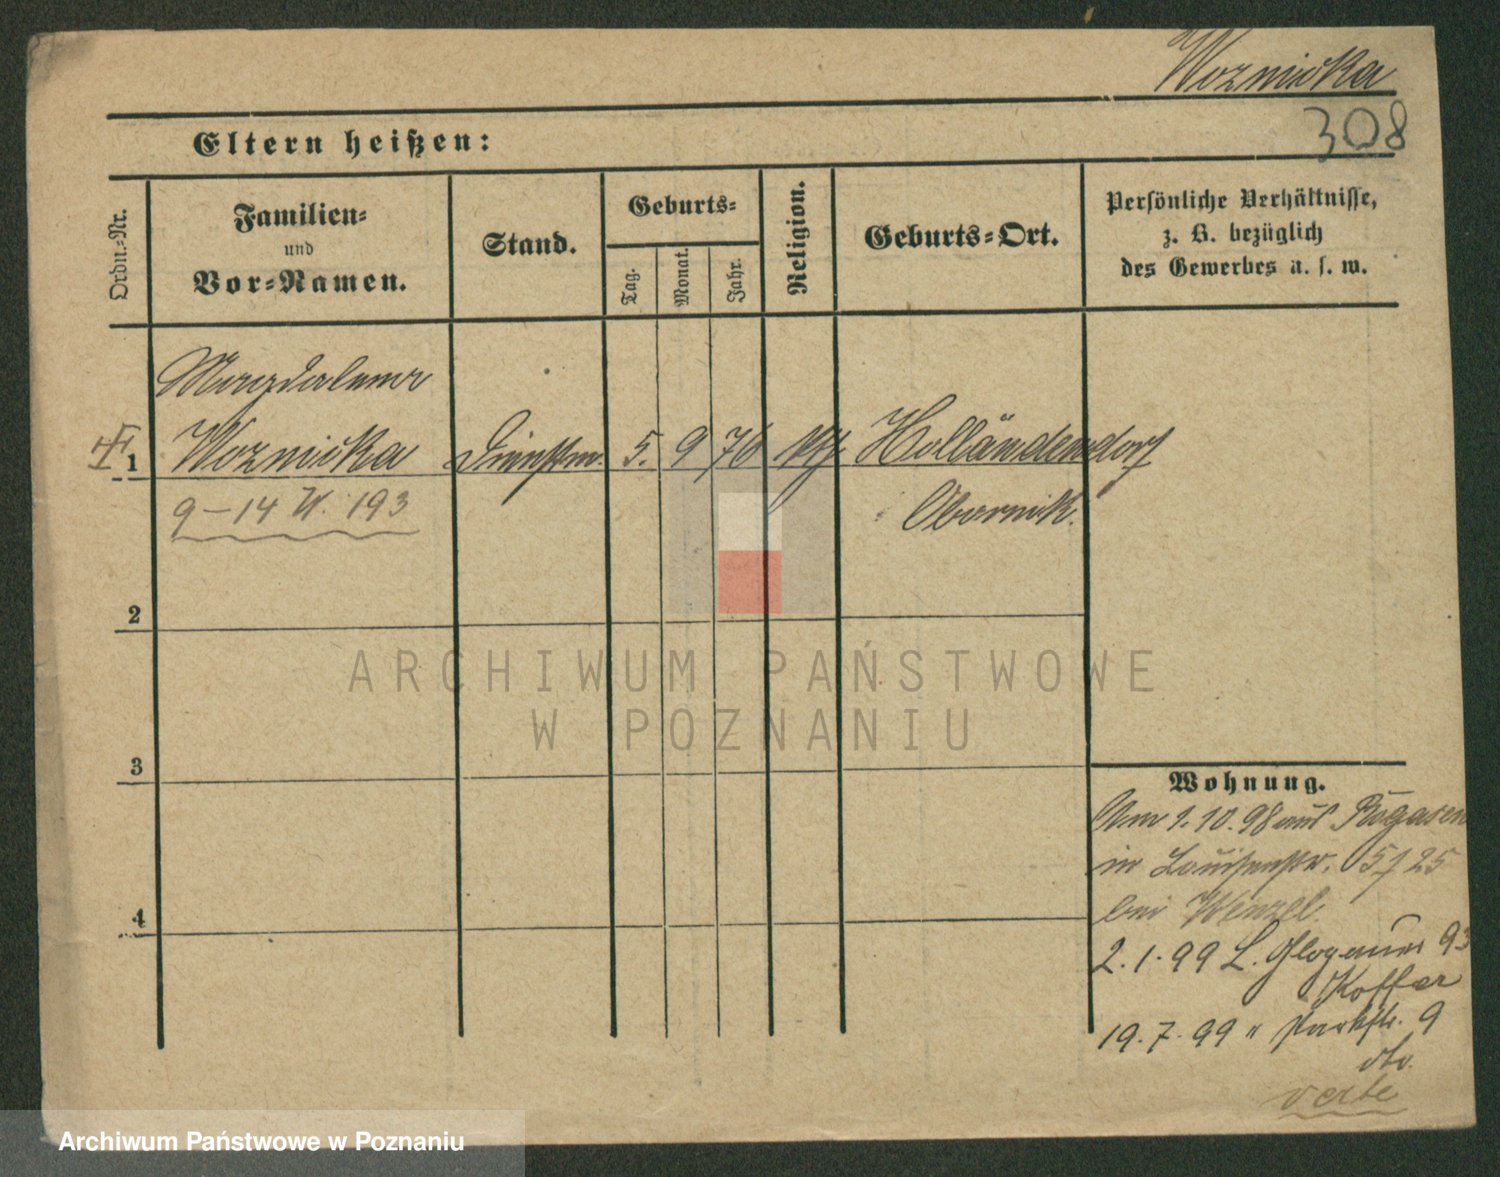 Woznicka
308
Eltern heißen:
Ordn.-Nr.
Familien-
und
Vor-Namen.
Stand.
Geburts-
Tag.
Monat.
Jahr.
Religion.
Geburts-Ort.
Persönliche Verhältnisse,
z. B. bezüglich
des Gewerbes u. s. w.
Magdalena
1 Woznicka Dienstm. 5. 9 76 kth Holländendorf
9-14 W. 193 Obornik.
2
ARCHIWUM PAŃSTWOWE
W POZNANIU
3
Wohnung.
Am 1.10.98 aus Rogasen
in Louisenstr. 25
bei Wenzel.
4
2.1.99 L. Glogauer 93
Koffer
19.7.99 " Parkstr. 9
dto.
verte
Archiwum Państwowe w Poznaniu